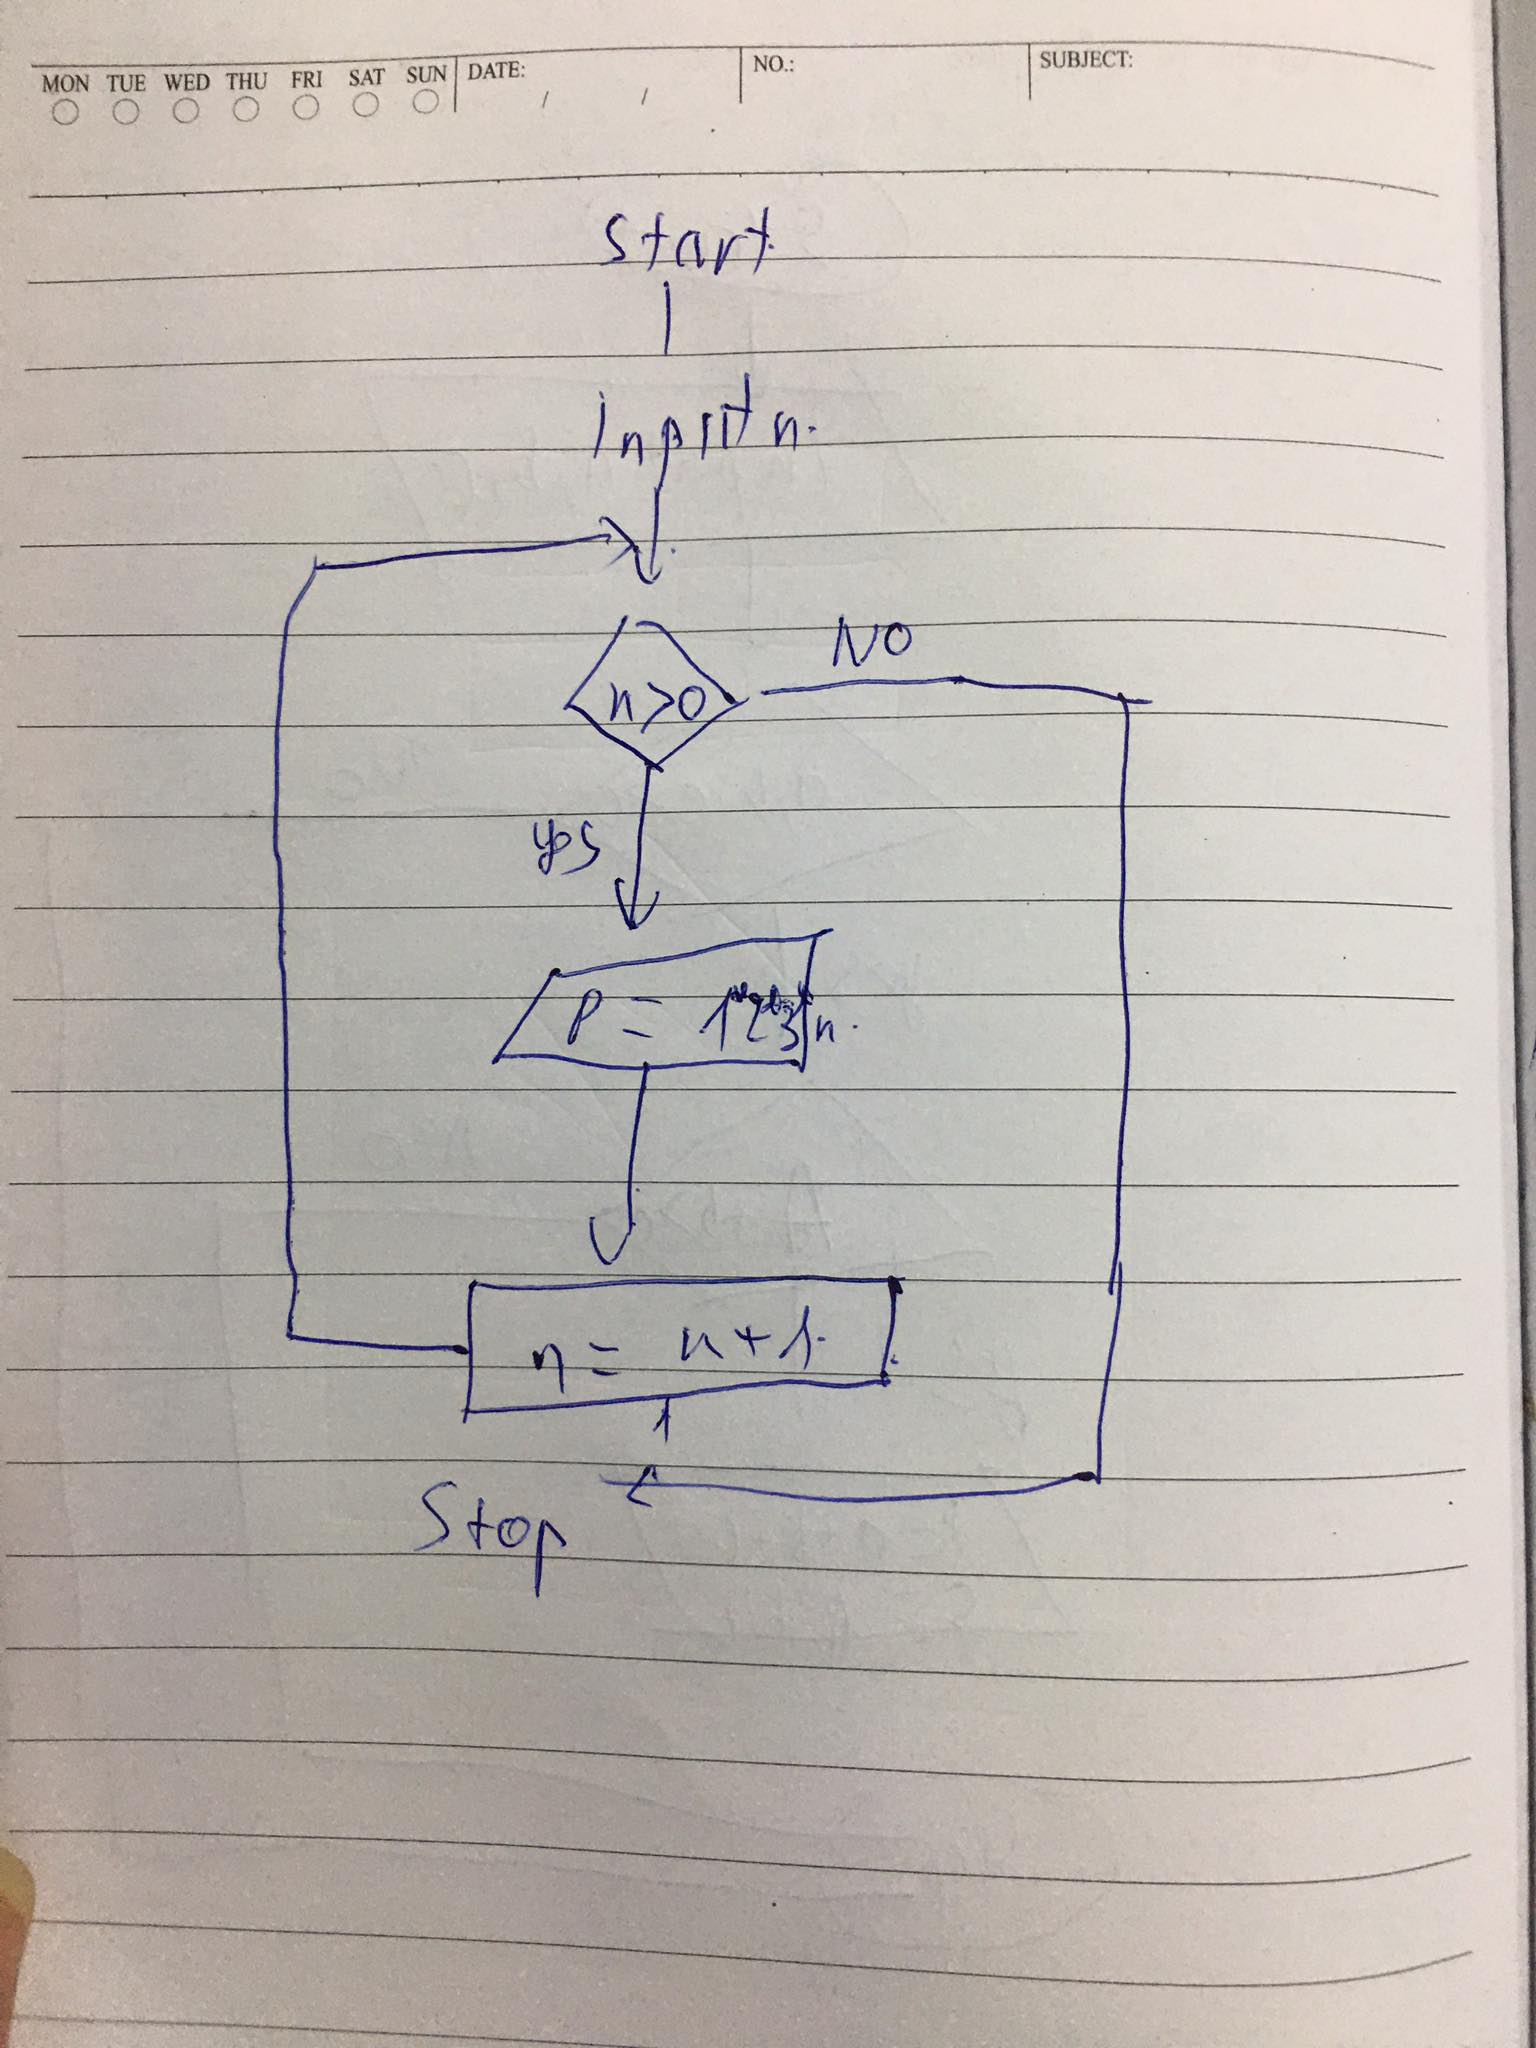 MON TUE WED THU FRI SAT SUN DATE: / / NO.: SUBJECT:
Start
Input n.
n>0 NO
yes
P = 1*2*3*n.
n = n+1.
Stop